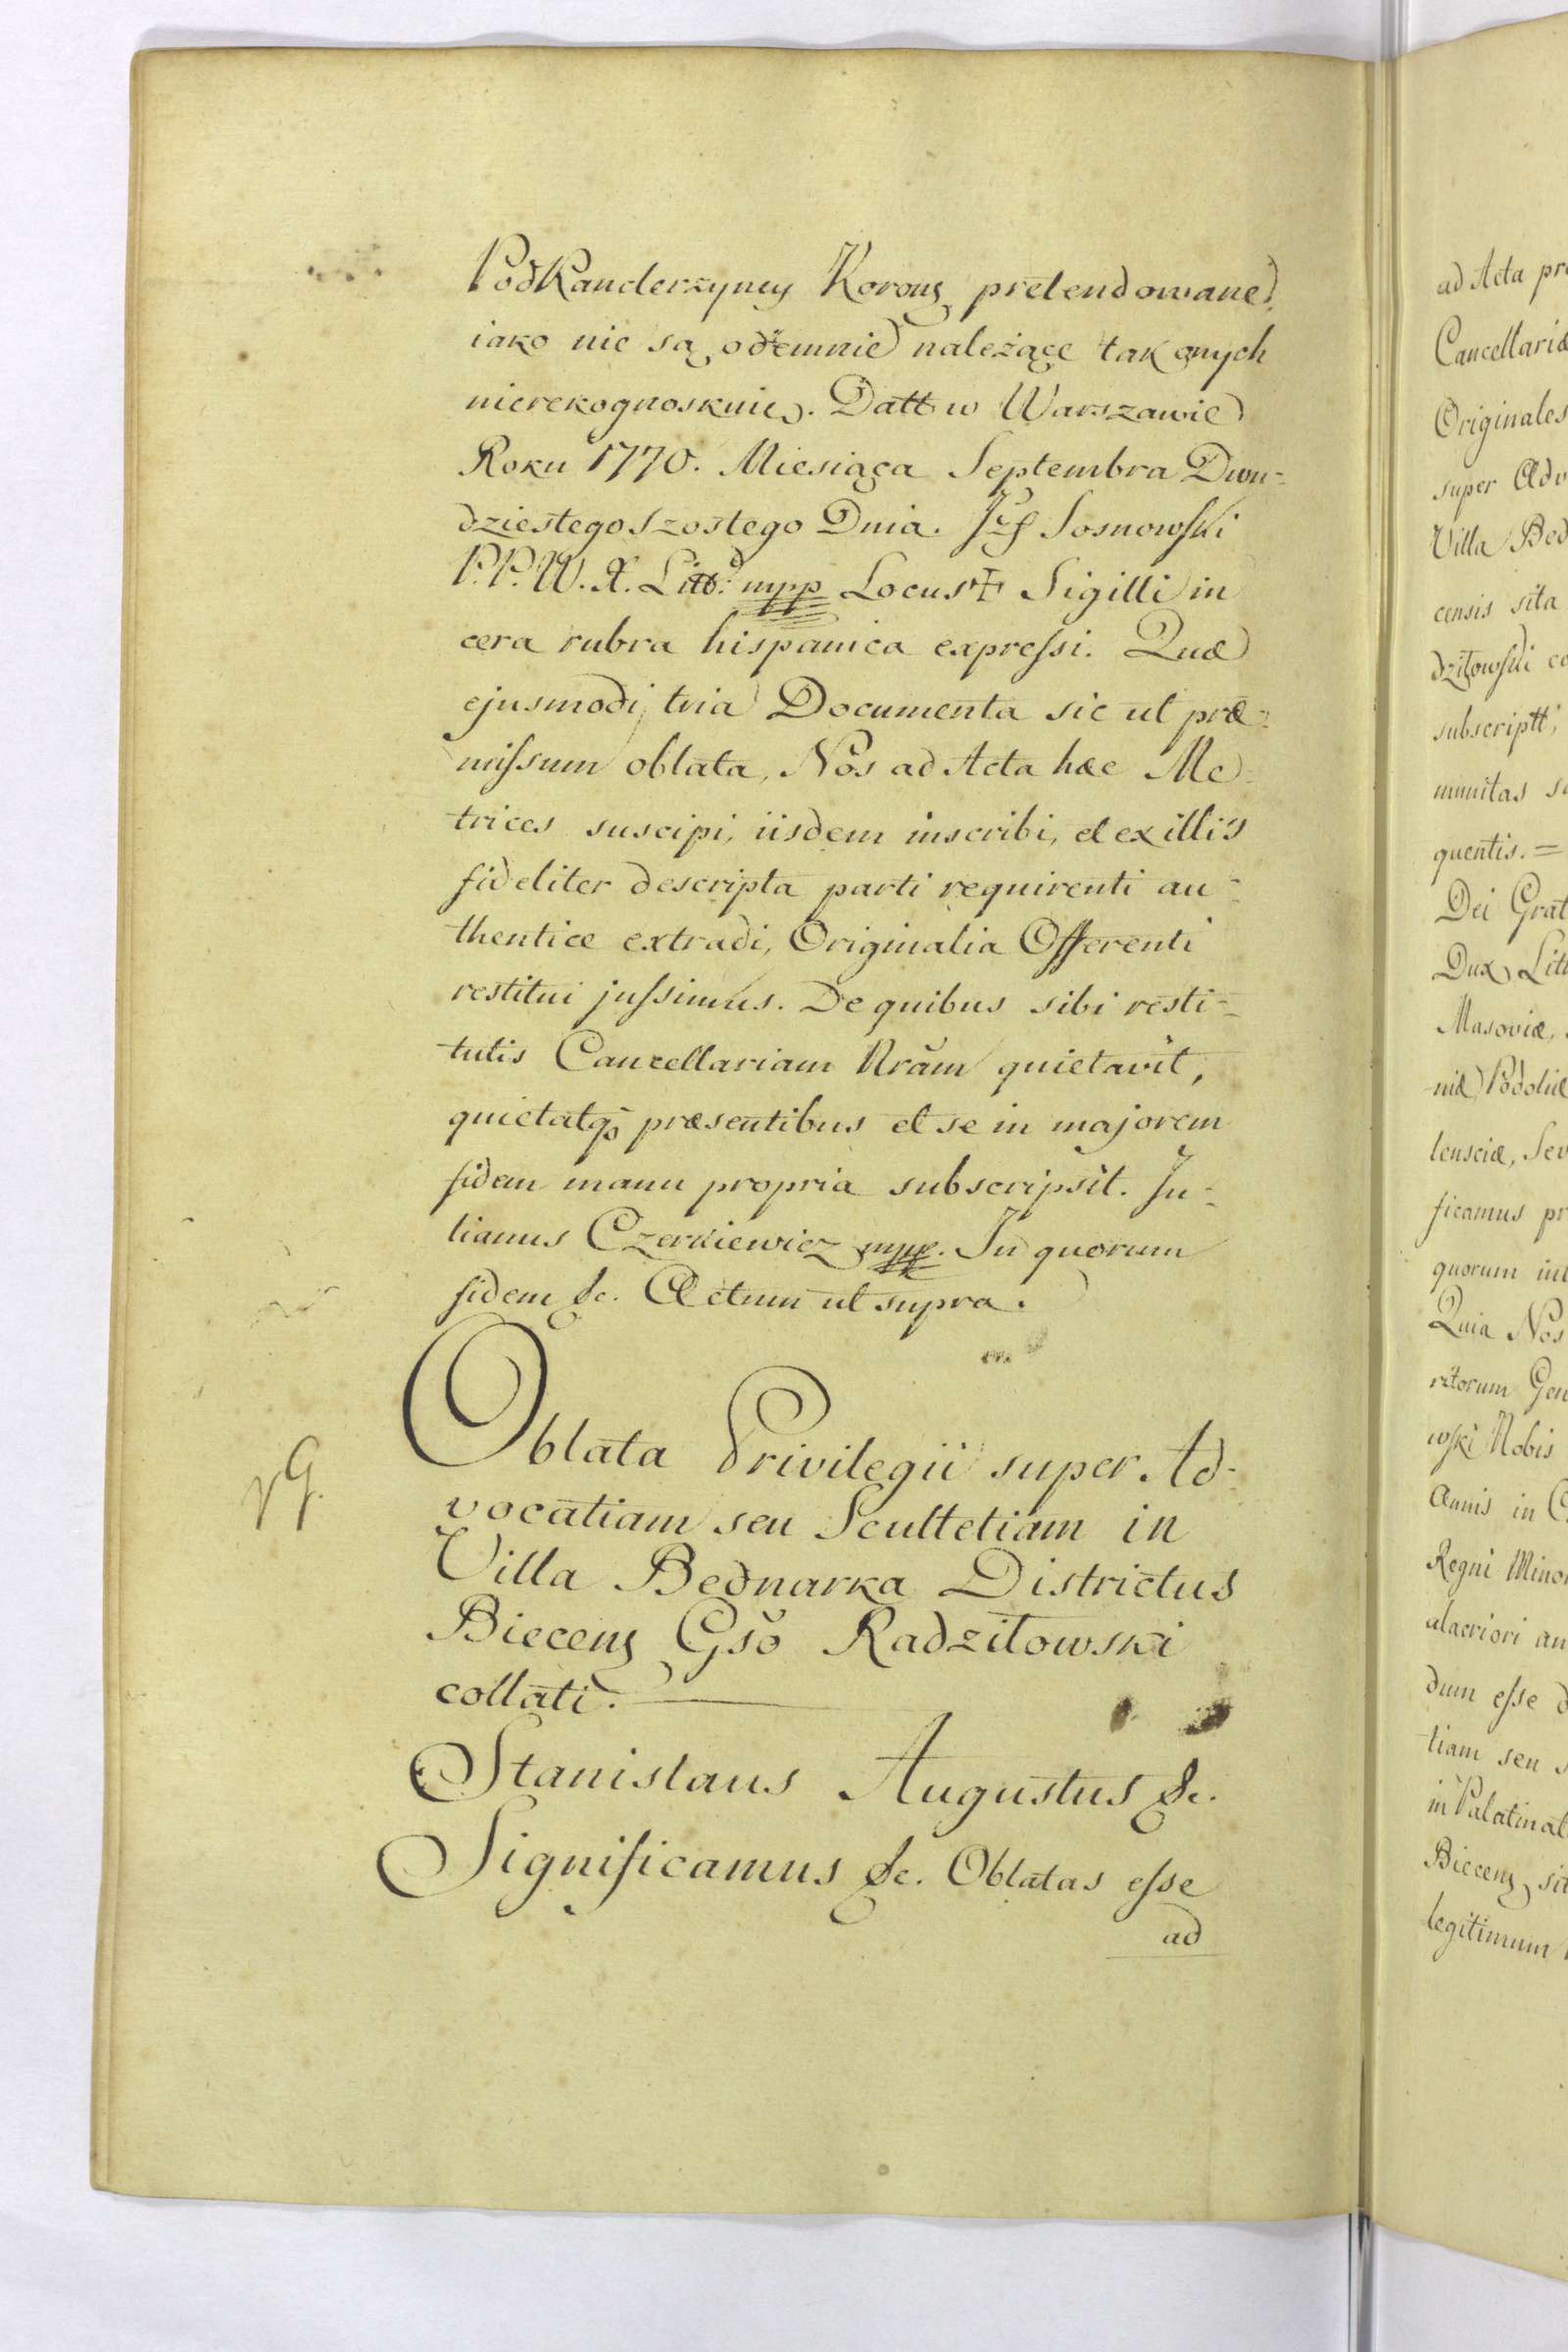 Podkanclerzyney Korony pretendowane
iako nie są odemnie należące tak onych
nierekognoskuię. Datt w Warszawie
Roku 1770. Miesiąca Septembra Dwu-
dziestego szostego Dnia. Jzf Sosnowski
P.P.W.X. Litt: mpp Locus + Sigilli in
cera rubra hispanica expressi. Quæ
ejusmodi tria Documenta sic ut præ-
missum oblata, Nos ad Acta hæc Me-
trices suscipi, iisdem inscribi, et ex illis
fideliter descripta parti requirenti au-
thentice extradi, Originalia Offerenti
restitui jussimus. De quibus sibi resti-
tutis Cancellariam Nrãm quietavit,
quietatq; præsentibus et se in majorem
fidem manu propria subscripsit. Ju-
lianus Czerkiewicz mpp. In quorum
fidem &c. Actum ut supra.
Oblata Privilegii super Ad-
vocatiam seu Scultetiam in
Villa Bednarka Districtus
Biecens Gso Radziłowski
collati.
Stanislaus Augustus &c.
Significamus &c. Oblatas esse
ad
ad Acta pr
Cancellariæ
Originales
super Adv
Villa Bed
censis sita
dziłowski co
subscriptt,
munitas s
quentis. =
Dei Grat
Dux Lit
Masoviæ,
niæ Podoliæ
lensciæ, Sev
ficamus pr
quorum int
Quia Nos
ritorum Gen
wski Nobis
Annis in C
Regni Minor
alacriori an
dum esse d
tiam seu s
in Palatinat
Biecens sit
legitimum